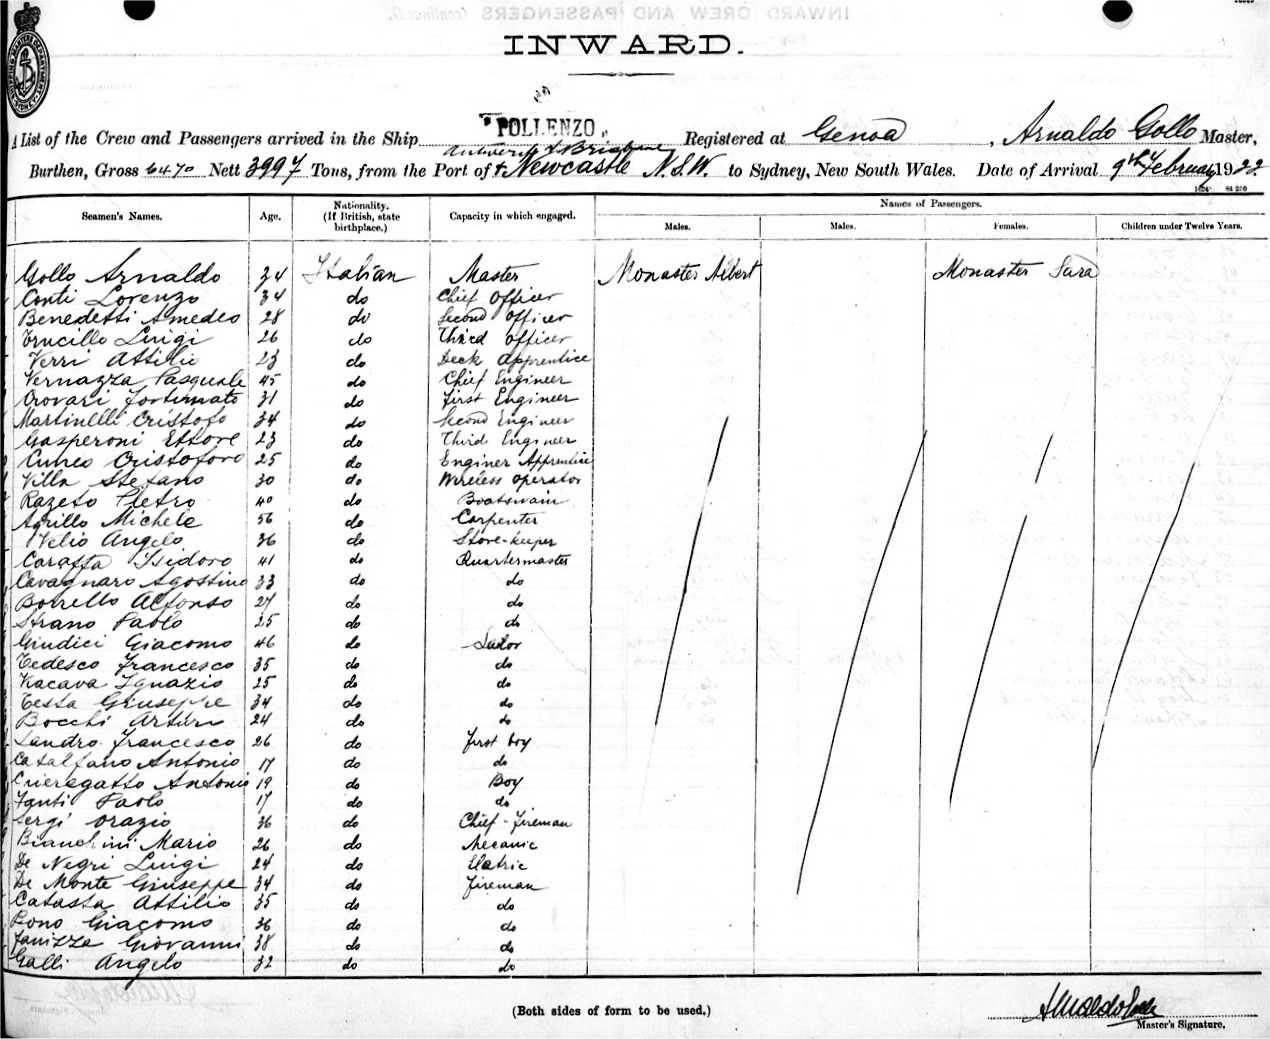 INWARD.
A List of the Crew and Passengers arrived in the Ship "POLLENZO" Registered at Genoa, Arnaldo Gollo Master,
Antwerp & Brisbane
Burthen, Gross 6470 Nett 3997 Tons, from the Port of & Newcastle N.S.W. to Sydney, New South Wales. Date of Arrival 9th February 1922.
Seamen's Names. Age. Nationality. (If British, state birthplace.) Capacity in which engaged. Names of Passengers.
Males. Males. Females. Children under Twelve Years.
Gollo Arnaldo 34 Italian Master Monaster Albert Monaster Sara
Conti Lorenzo 34 do Chief Officer
Benedetti Amedeo 28 do Second Officer
Trucillo Luigi 26 do Third Officer
Verri Attilio 23 do Deck Apprentice
Vernazza Pasquale 45 do Chief Engineer
Crovari Fortunato 31 do First Engineer
Martinelli Cristofo 34 do Second Engineer
Gasperoni Ettore 23 do Third Engineer
Cuneo Cristoforo 25 do Enginer Apprentice
Villa Stefano 30 do Wireless Operator
Razeto Pietro 40 do Boatswain
Michele 56 do Carpenter
Velio Angelo 36 do Store-keeper
Caraffa Isidoro 41 do Quartermaster
Cavagnaro Agostino 33 do do
Borrello Alfonso 27 do do
Strano Paolo 25 do do
Giudici Giacomo 46 do Sailor
Tedesco Francesco 35 do do
Kacava Ignazio 25 do do
Testa Giuseppe 34 do do
Bocchi Arturo 24 do do
Landro Francesco 26 do First boy
Catalfano Antonio 17 do do
Crieregatto Antonio 19 do Boy
Fanti Paolo 17 do do
Sergi Orazio 36 do Chief-Fireman
Bianchini Mario 26 do Mecanic
De Negri Luigi 24 do
De Monte Giuseppe 34 do Fireman
Catassa Attilio 35 do do
Bono Giacomo 36 do do
Giovanni 38 do do
Galli Angelo 32 do do
(Both sides of form to be used.)
Master's Signature.